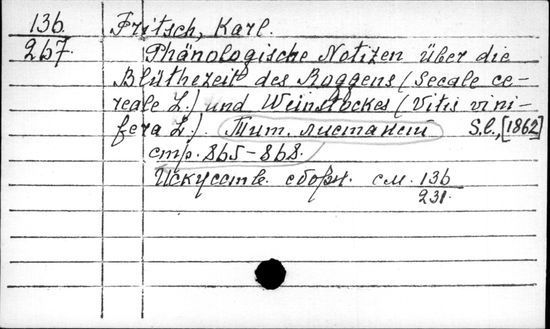 136 Fritsch, Karl.
267. Phänologische Notizen über die
Blüthezeit des Roggens (Secale ce-
reale L.) und Weinstockes (Vitis vini-
fera L.). Тит. листа нет S.l., [1862]
стр. 865-868.
Искусств. сборн. см. 136
231.